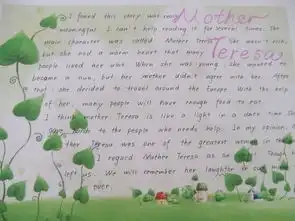 I found this story was
Mother
meaningful. I can't help reading it for several times. The
main character was called Mother Teresa. She wasn't rich,
but she had a warm heart that many
Teresa
people loved her a lot. When she was young, she wanted to
became a nun, but her mother didn't agree with her. After
that, she decided to travel around the Europe. With the help
of her, many people will have enough food to eat.
I think Mother Teresa is like a light in a dark time. She
to the people who needs help. In my opinion,
Teresa was one of the greatest women in the
I regard Mother Teresa as Though
left us. We will remember her
ever.